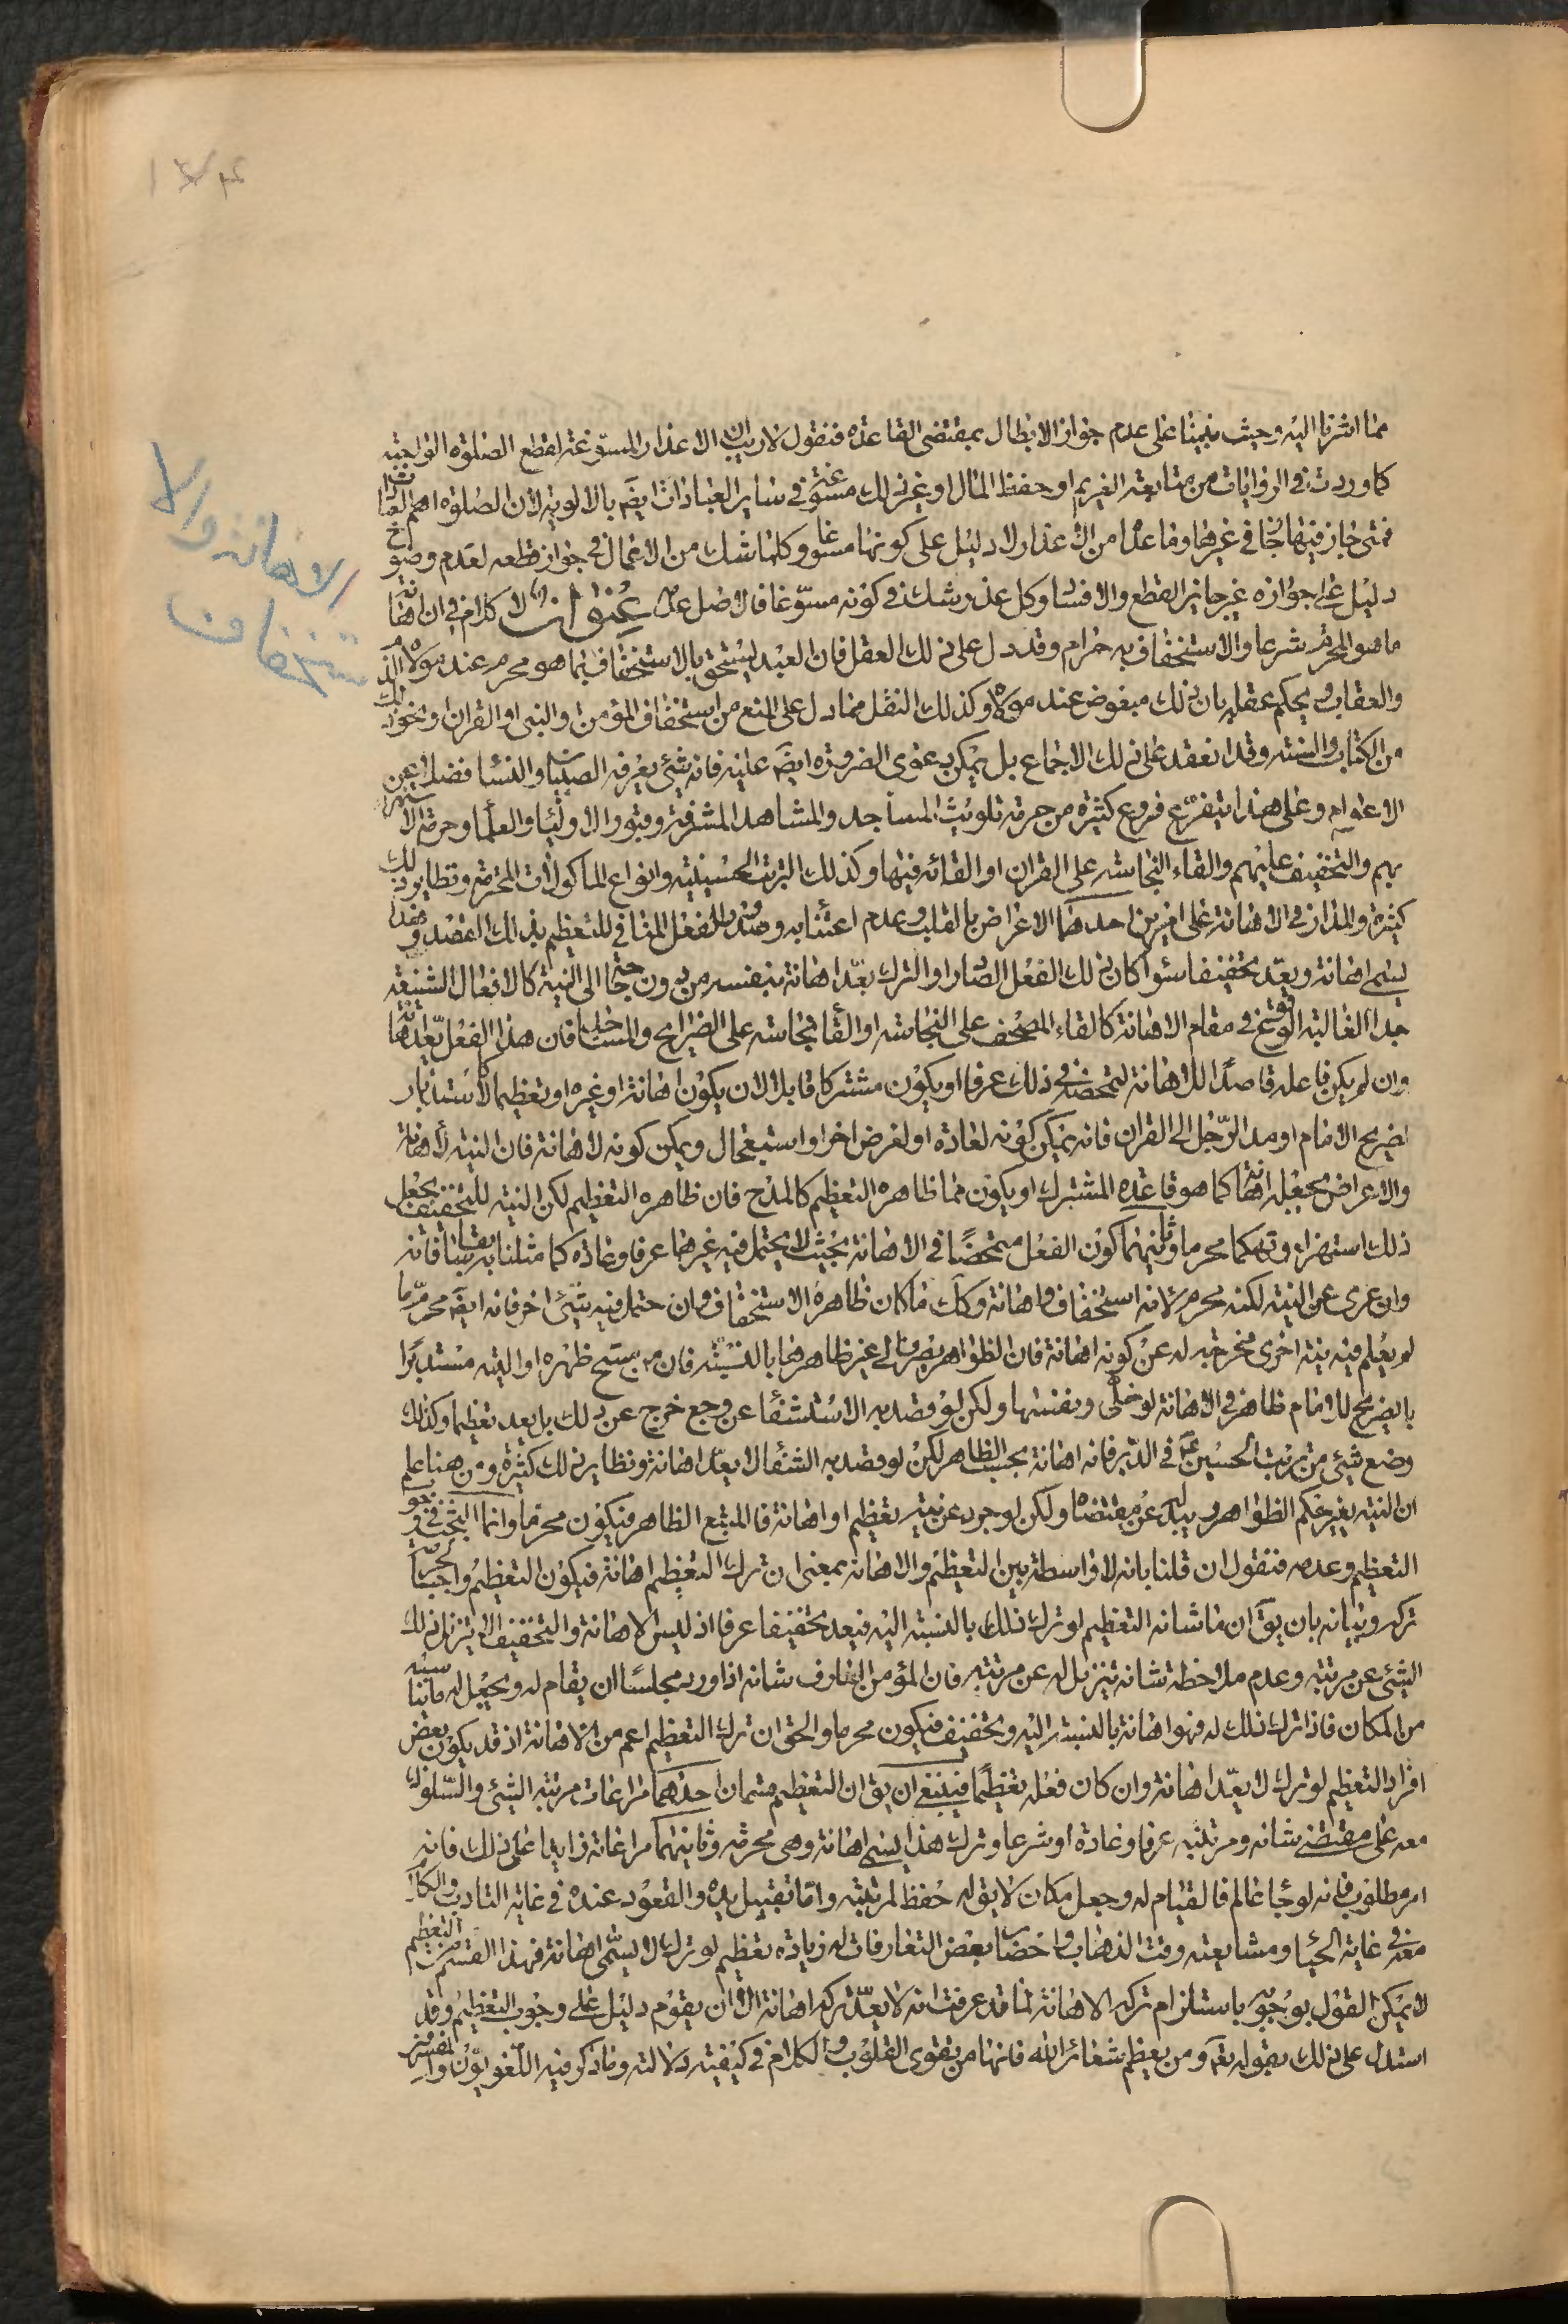 مما اشرنا اليه وحيث بنينا على عدم جواز الابطال بمقتضى القاعدة فنقول لا ريب ان الاعذار المسوغة لقطع الصلوة الواجبة
كما وردت في الروايات من متابعة الغريم او حفظ المال او غير ذلك مسوغة في ساير العبادات ايضَ بالاولوية لان الصلوة اهم العبادات
فمتى جاز فيها جاز في غيرها وما عدا من الاعذار لا دليل على كونها مسوغا وكلما شك من الاعمال في جواز قطعه لعدم وضوح
دليل على جوازه غير جايز القطع والافساد وكل عذر شك في كونه مسوّغا فالاصل عدمه عنوان لا كلام في ان اهانة
ما هو المحترم شرعا والاستخفاف به حرام وقد دل على ذلك العقل فان العبد يستحق بالاستخفاف بما هو محرم عند مولاه الذم
والعقاب ويحكم عقله بان ذلك مبغوض عند مولاه وكذلك النقل مما دل على المنع من استخفاف المؤمن والنبي او القران ونحو ذلك
من الكتاب والسنة وقد انعقد على ذلك الاجماع بل يمكن دعوى الضرورة ايضَ عليه فانه شئ يعرفه الصبيان والنساء فضلا عن
الاعوام وعلى هذا يتفرّع فروع كثيرة من حرمة تلويث المساجد والمشاهد المشرفة وقبور الاولياء والعلماء وحرمة الاستهزاء
بهم والتخفيف عليهم والقاء النجاسة على القران او القائه فيها وكذلك التربة الحسينية وانواع المأكولات المحترمة ونظاير ذلك
كثيرة والمدار في الاهانة على امرين احدهما الاعراض بالقلب وعدم اعتنا به وصدور الفعل المنافي للتعظيم بذلك القصد وهذا
يسمى اهانة ويعدّ تخفيفا سواء كان ذلك الفعل الصادر او الترك يعدّ اهانة بنفسه من دون حاجة الى النية كالافعال الشنيعة
جدا الغالبة الوقوع في مقام الاهانة كالقاء المصحف على النجاسة او القاء نجاسة على الضرايح والمساجد فان هذا الفعل يعدّ اهانة
وان لم يكن فاعله قاصدًا للاهانة لتمحضه في ذلك عرفا او يكون مشتركا قابلا لان يكون اهانة او غيره او تعظيما كاستدبار
لضريح الامام او مد الرّجل الى القران فانه يمكن كونه لعادة او لغرض اخر او استعجال ويمكن كونه لاهانة فان النية لاهانة
والاعراض يجعله اهانة كما هو قاعدة المشترك او يكون مما ظاهره التعظيم كالمدح فان ظاهره التعظيم لكن النية للتخفيف يجعل
ذلك استهزاء وتهكما محرما وثانيهما كون الفعل متمحضًا في الاهانة بحيث لا يحتمل فيه غيرها عرفا وعادة كما مثلنا به سابقا فانه
وان عرى عن النية لكنه محرم لانه استخفاف واهانة وكك ما كان ظاهره الاستخفاف وان حتمل فيه شئ اخر فانه ايضَ محرّم ما
لم يعلم فيه نية اخرى مخرجة له عن كونه اهانة فان الظواهر يصرف الى غير ظاهرها بالنسبة فان من يمسح ظهره او اليته مستدبرًا
بالضريح للامام ظاهر في الاهانة لو خلى ونفسها ولكن لو قصد به الاستشفاء عن وجع خرج عن ذلك بل يعد تعظيما وكذلك
وضع شئ من تربت الحسين ع في الدبر فانه اهانة بحسب الظاهر لكن لو قصد به الشفا لا يعدّ اهانة ونظاير ذلك كثيرة ومن هنا علم
ان النية يغير حكم الظواهر ويبدله عن مقتضاه ولكن لو جرد عن نية تعظيم او اهانة فالمتبع الظاهر فيكون محرما وانما البحث في وجوب
التعظيم وعدمه فنقول ان قلنا بانه لا واسطة بين التعظيم والاهانة بمعنى ان ترك التعظيم اهانة فيكون التعظيم واجبا لحرمة
تركه وبيانه بان يقَ ان ما شانه التعظيم لو ترك ذلك بالنسبة اليه فيعد تخفيفا عرفا اذ ليس الاهانة والتخفيف الا تنزيل ذلك
الشئ عن مرتبته وعدم ملاحظة شانه تنزيل له عن مرتبته فان المؤمن العارف شانه اذا ورد مجلسًا ان يقام له ويجعل له ما يناسبه
من المكان فاذا ترك ذلك له فهو اهانة بالنسبة اليه وتخفيف فيكون محرما والحق ان ترك التعظيم اعم من الاهانة اذ قد يكون بعض
افراد التعظيم لو ترك لا يعدّ اهانة وان كان فعله تعظيمًا فينبغي ان يق ان التعظيم قسمان احدهما مراعات مرتبة الشئ والسّلوك
معه على مقتضى شانه ومرتبته عرفا وعادة او شرعا وترك هذا يسمى اهانة وهي محرمة وثانيهما مراعاة زايدا على ذلك فانه
امر مطلوب فانه لو جاء عالم فالقيام له وجعل مكان لا يق له حفظ لمرتبته وامّا تقبيل يده والقعود عنده في غاية التادب والكلام
معه في غاية الحياء ومشايعته وقت الذهاب واحضار بعض التعارفات له زيادة تعظيم لو ترك لا يسمّى اهانة فهذا القسم من التعظيم
لا يمكن القول بوجوبه باستلزام تركه الاهانة لما قد عرفت انه لا يعدّ تركه اهانة الا ان يقوم دليل على وجوب التعظيم وقد
استدل على ذلك بقوله تعَ ومن يعظم شعائر الله فانها من تقوى القلوب والكلام في كيفية دلالته وما ذكر فيه اللغويّون والمفسرون
الاهانة والا
ستخفاف